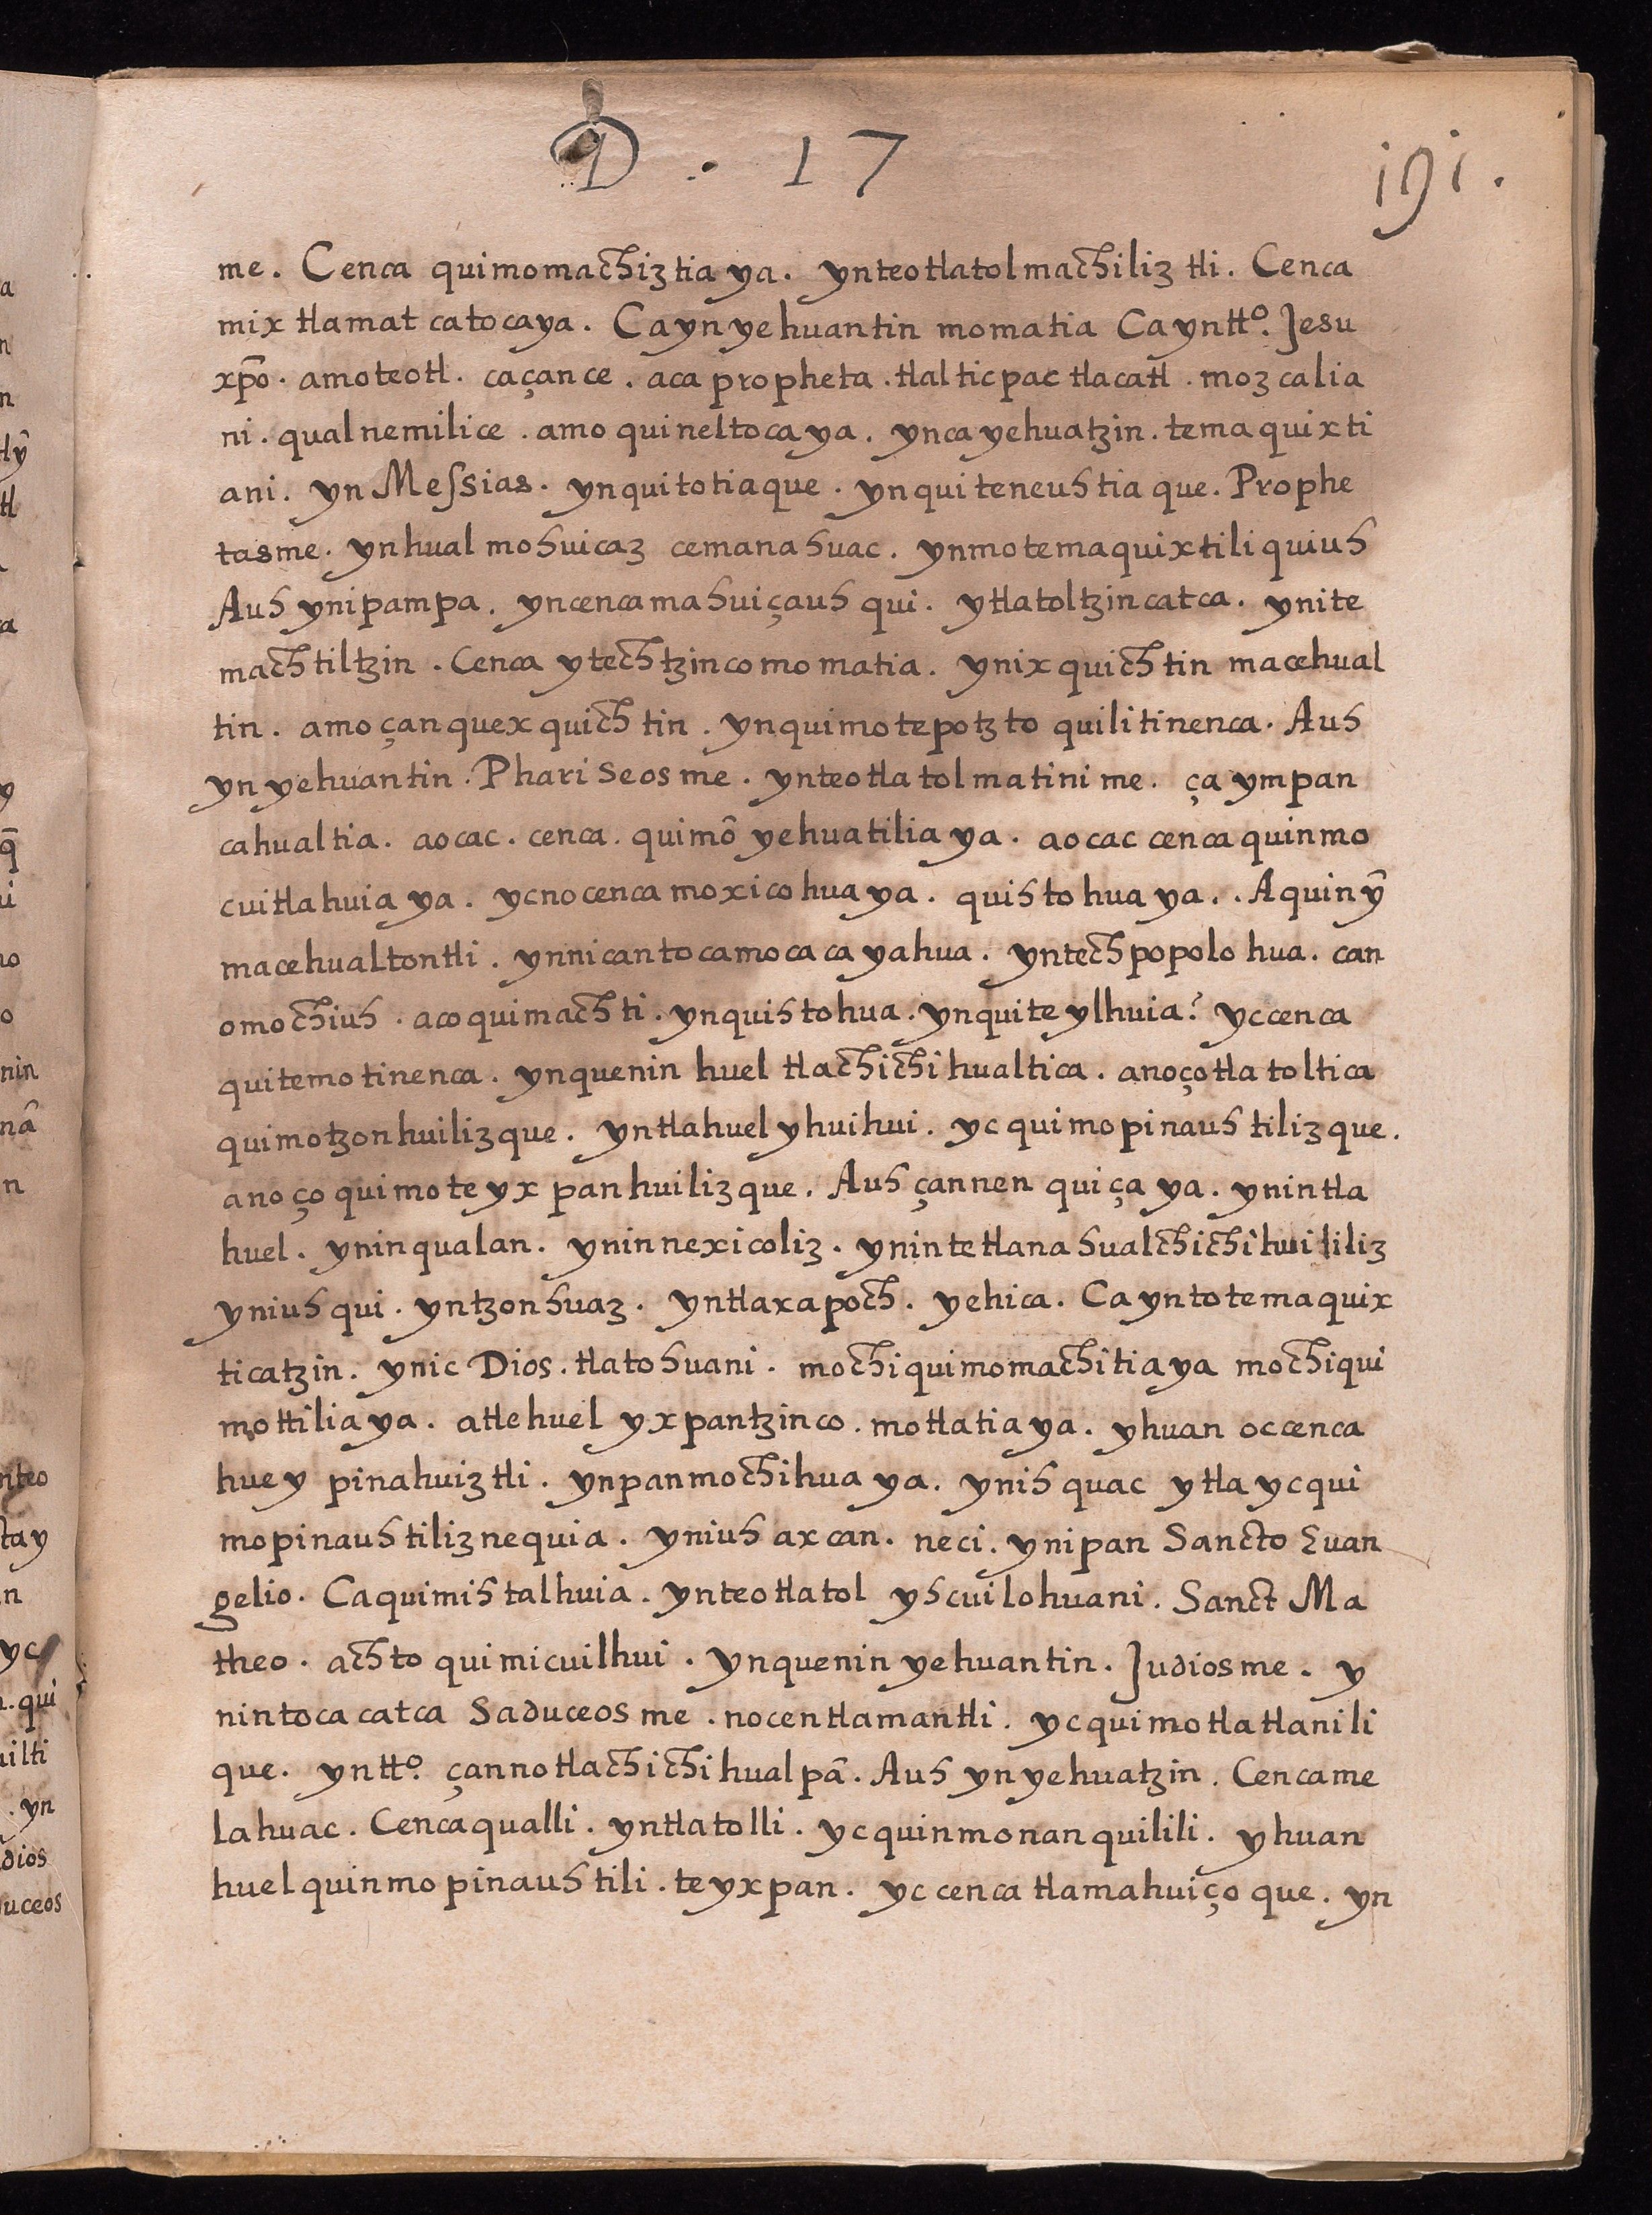 D . 17
191.
me. Cenca quimomachiztia ya. ynteotlatolmachiliz tli. Cenca
mix tlamat catocaya. Caynyehuantin momatia Cayntto. Jesu
xp̄o. amoteotl. caçan ce. aca propheta. tlalticpac tlacatl. mozcalia
ni. qualnemilice. amo quineltoca ya. ynca yehuatzin. temaquixti
ani. yn Messias. ynquitotiaque. ynquiteneuhtia que. Prophe
tasme. ynhual mohuicaz cemanahuac. ynmotemaquixtiliquiuh
Auh ynipampa. yncencamahuiçauhqui. ytlatoltzincatca. ynite
machtiltzin. Cenca ytechtzincomomatia. ynixquichtin macehual
tin. amoçanquexquichtin. ynquimotepotztoquilitinenca. Auh
yn yehuantin. Phariseosme. ynteotlatolmatinime. ça ympan
cahualtia. aocac. cenca. quimō yehuatilia ya. aocac cenca quinmo
cuitlahuia ya. ycnocenca moxicohua ya. quihtohua ya.. Aquinȳ
macehualtontli. ynnicantocamocacayahua. yntechpopolohua. can
omochiuh. acoquimachti. ynquihtohua. ynquiteylhuia? yccenca
quitemotinenca. ynquenin huel tlachichihualtica. anoçotlatoltica
quimotzonhuilizque. yntlahuel yhuihui. yc quimopinauhtilizque.
anoço quimoteyxpanhuilizque. Auh çannen quiça ya. ynintla
huel. yninqualan. yninnexicoliz. ynintetlanahualchichihuililiz
yniuhqui. yntzonhuaz. yntlaxapoch. yehica. Cayntotemaquix
ticatzin. ynic Dios. tlatohuani. mochiquimomachitia ya mochiqui
mottilia ya. atlehuel yxpantzinco. motlatia ya. yhuan occenca
huey pinahuiztli. ynpanmochihua ya. ynihquac ytla ycqui
mopinauhtiliznequia. yniuh axcan. neci. ynipan Sancto Euan
gelio. Caquimihtalhuia. ynteotlatol yhcuilohuani. Sanct Ma
theo. achto quimicuilhui. ynquenin yehuantin. Judiosme. y
nintoca catca Saduceosme. nocentlamantli. ycquimotlatlanili
que. yntto. çannotlachichihualpā. Auh ynyehuatzin. Cencame
lahuac. Cencaqualli. yntlatolli. ycquinmonanquilili. yhuan
huelquinmopinauhtili. teyxpan. yc cenca tlamahuiçoque. yn